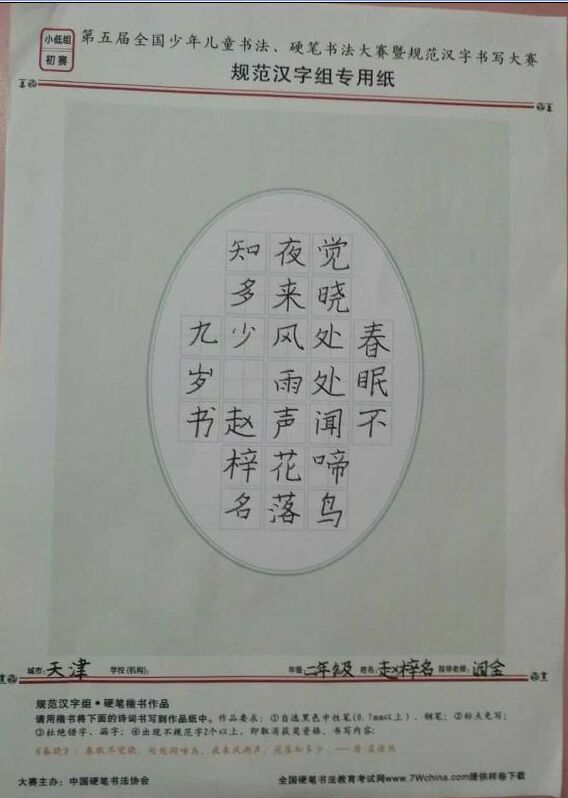 小低组
初赛
第五届全国少年儿童书法、硬笔书法大赛暨规范汉字书写大赛
规范汉字组专用纸
春眠不
觉晓处处闻啼鸟
夜来风雨声花落
知多少 赵梓名
九岁书
城市：天津 学校(机构)： 年级：二年级 姓名：赵梓名 指导老师：闫金
规范汉字组•硬笔楷书作品
请用楷书将下面的诗词书写到作品纸中。作品要求：①自选黑色中性笔(0.7mm以上)、钢笔；②标点免写；
③杜绝错字、漏字；④出现不规范字2个以上，即取消获奖资格，书写内容：
《春晓》：春眠不觉晓，处处闻啼鸟，夜来风雨声，花落知多少 —唐 孟浩然
大赛主办：中国硬笔书法协会 全国硬笔书法教育考试网www.7Wchina.com提供样卷下载